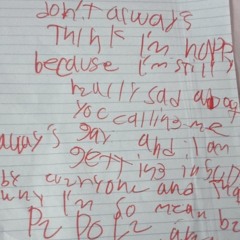 don't always
Think I'm happy
because I'm still
really sad abo
you calling me
always gay and I am
getting ins
by everyone and tha
why I'm so mean bz
Pz